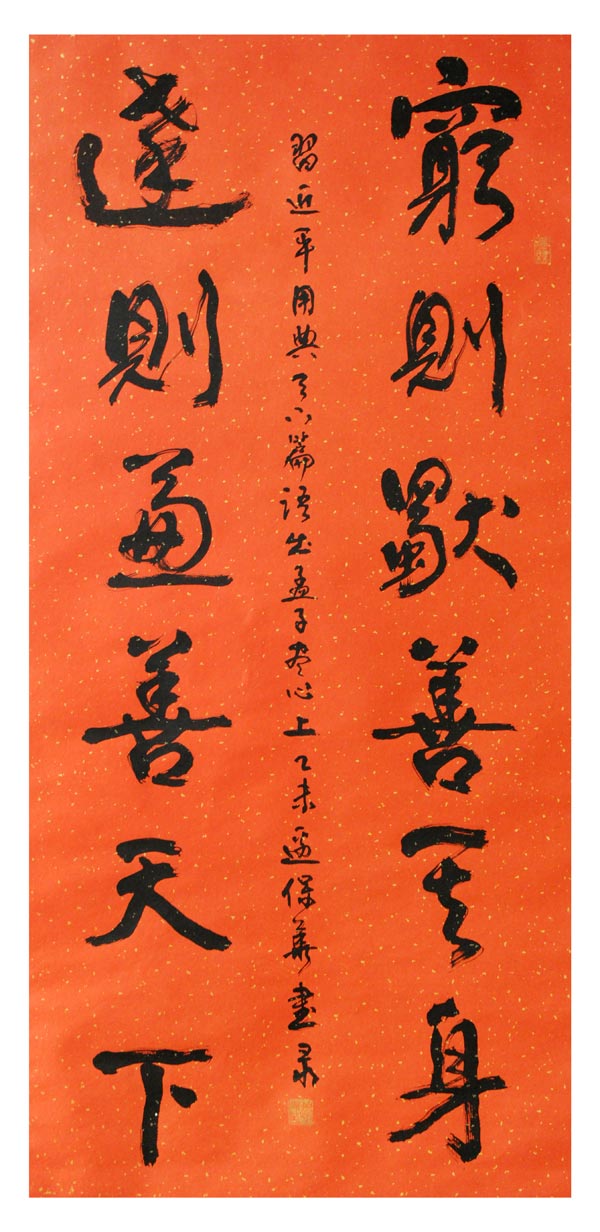 窮則獨善其身
達則兼善天下
習近平用典天下篇语出孟子尽心上乙未保華書录